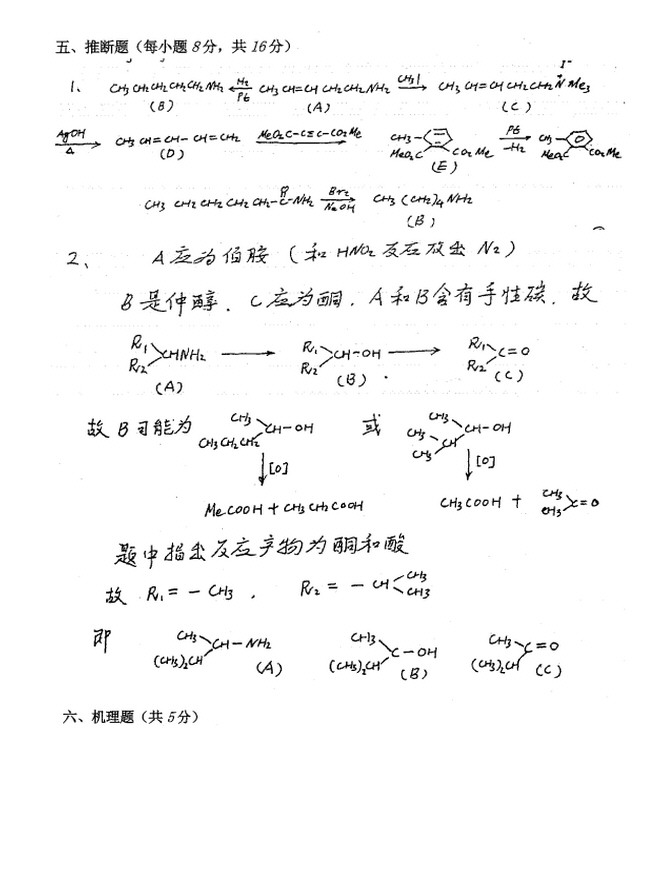 五、推断题（每小题 8 分，共 16 分）
1、 CH3 CH2 CH2 CH2 CH2 NH2 ←H2/Pt CH3 CH=CH CH2 CH2 NH2 CH3I→ CH3 CH=CH CH2 CH2 N Me3 I-
(B) (A) (C)
AgOH/Δ→ CH3 CH=CH-CH=CH2 MeO2C-C≡C-CO2Me→ CH3- MeO2C CO2Me Pt/-H2→ CH3- MeO2C CO2Me
(D) (E)
CH3 CH2 CH2 CH2 CH2-C-NH2 O Br2/NaOH→ CH3 (CH2)4 NH2
(B)
2、 A应为伯胺（和 HNO2 反应放出 N2）
B是仲醇．C应为酮．A和B含有手性碳．故
R1 R2 CHNH2 → R1 R2 CH-OH → R1 R2 C=O
(A) (B) . (C)
故 B 可能为 CH3 CH3CH2CH2 CH-OH 或 CH3 CH3 CH3 CH CH-OH
↓[O] ↓[O]
MeCOOH + CH3 CH2 COOH CH3COOH + CH3 CH3 C=O
题中指出反应产物为酮和酸
故 R1 = - CH3 , R2 = - CH CH3 CH3
即 CH3 (CH3)2CH CH-NH2 CH3 (CH3)2CH C-OH CH3 (CH3)2CH C=O
(A) (B) (C)
六、机理题（共 5 分）